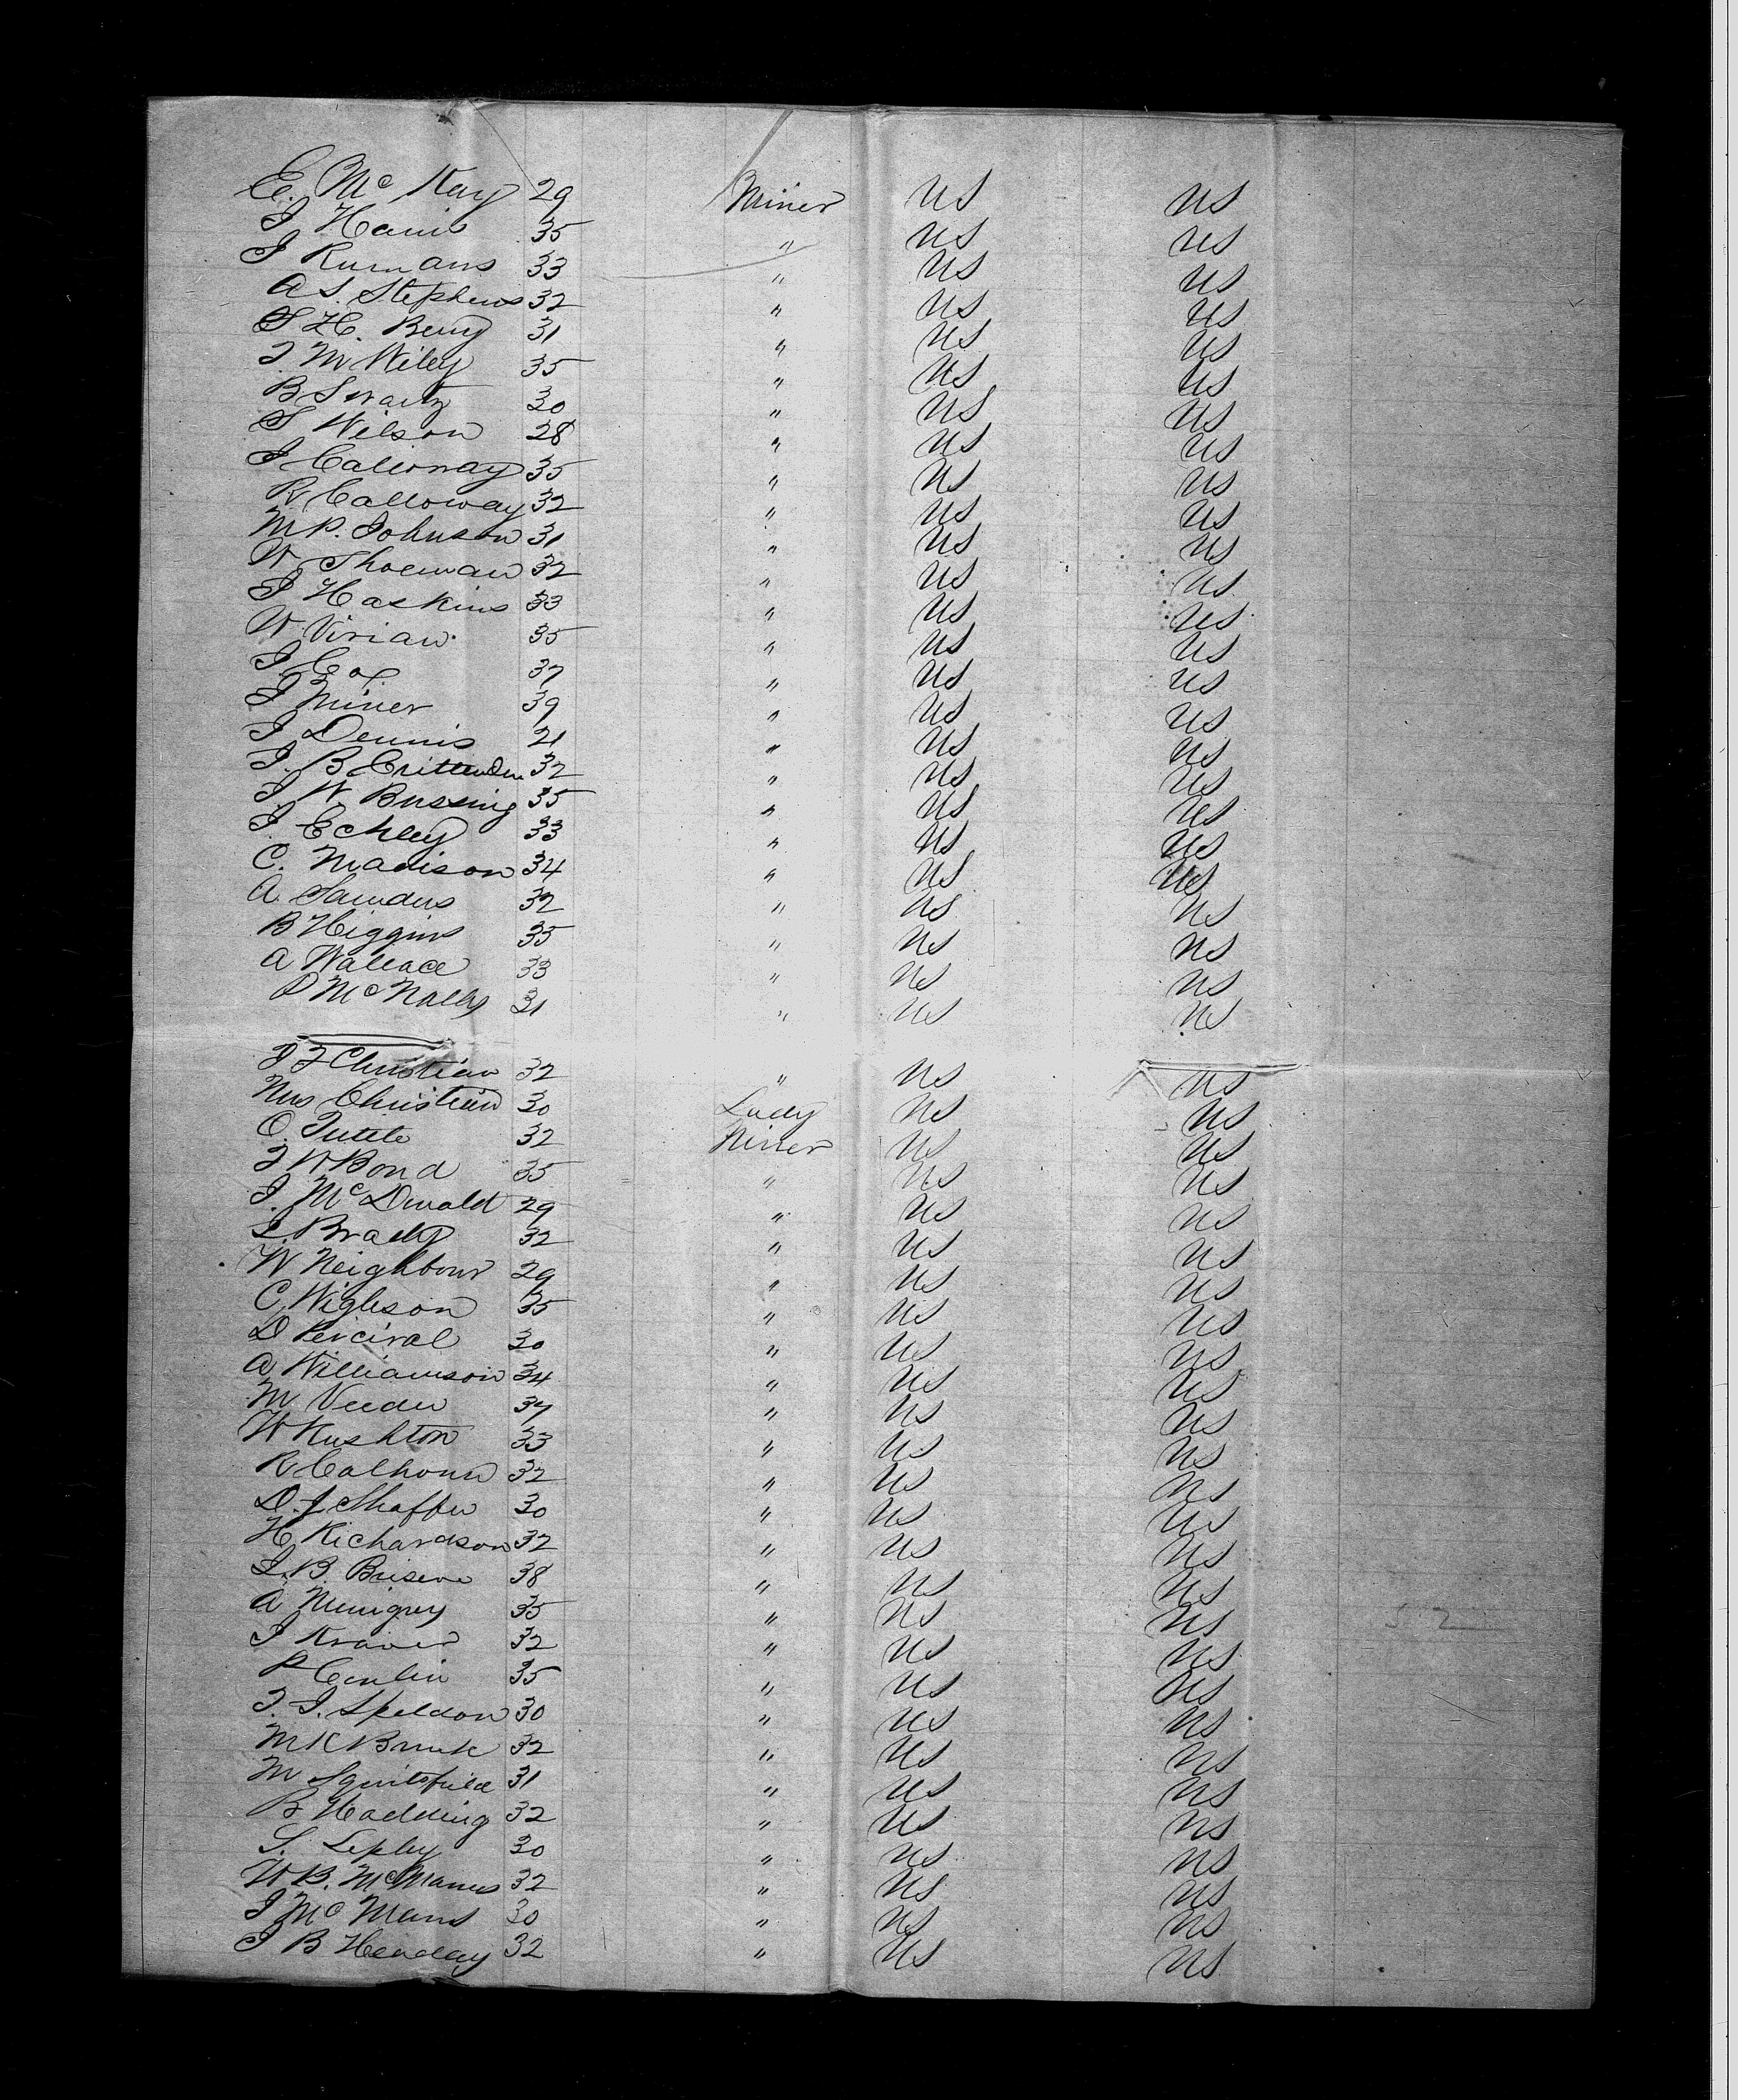 E. Mc Kay 29 Miner US US
J Harris 35 " US US
J Rumans 33 " US US
A S. Stephens 32 " US US
S H. Berry 31 " US US
J. M Wiley 35 " US US
B Swartz 30 " US US
S Wilson 28 " US US
J Calloway 35 " US US
R Calloway 32 " US US
M P. Johnson 31 " US US
W. Shoeman 32 " US US
J Haskins 33 " US US
W. Vivian 35 " US US
J Cox 37 " US US
J Miner 39 " US US
J Dennis 21 " US US
J. B Crittenden 32 " US US
J. W Bussing 35 " US US
J. Echley 33 " US US
C. Madison 34 " US US
A. Saunders 32 " US US
B Higgins 35 " US US
A Wallace 33 " US US
P McNally 31 " US US
J F Christian 32 " US US
Mrs Christian 30 Lady US US
O. Tuttle 32 Miner US US
J W Bond 35 " US US
J. McDonald 29 " US US
L. Brady 32 " US US
W Neighbour 29 " US US
C. Wigleson 35 " US US
D Percival 30 " US US
A Williamson 34 " US US
M Veeder 37 " US US
W Rushton 33 " US US
R Calhoun 32 " US US
D. J Shaffer 30 " US US
H. Richardson 32 " US US
L. B. 38 " US US
A 35 " US US
J Kramer 32 " US US
P Conlin 35 " US US
T. J. Speldon 30 " US US
M K 32 " US US
M 31 " US US
B Hadding 32 " US US
S. Lepley 30 " US US
W B. McManus 32 " US US
J McManus 30 " US US
J B Headley 32 " US US
52